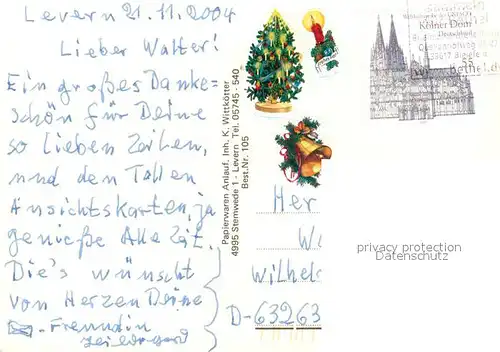 Levern 21.11.2004
Lieber Walter!
Ein großes Danke=
schön für Deine
so lieben Zeilen,
und den Tollen
Ansichtskarten, ja
genieße Alle Zeit.
Die's wünscht
von Herzen Deine
-Freundin
Papierwaren Anlauf, Inh. K. Wittkötter
4995 Stemwede 1 - Levern Tel. 05745 - 540
Best.Nr. 105
Kölner Dom
Deutschland
Her
W
Wilhel
D-63263
privacy protection
Datenschutz